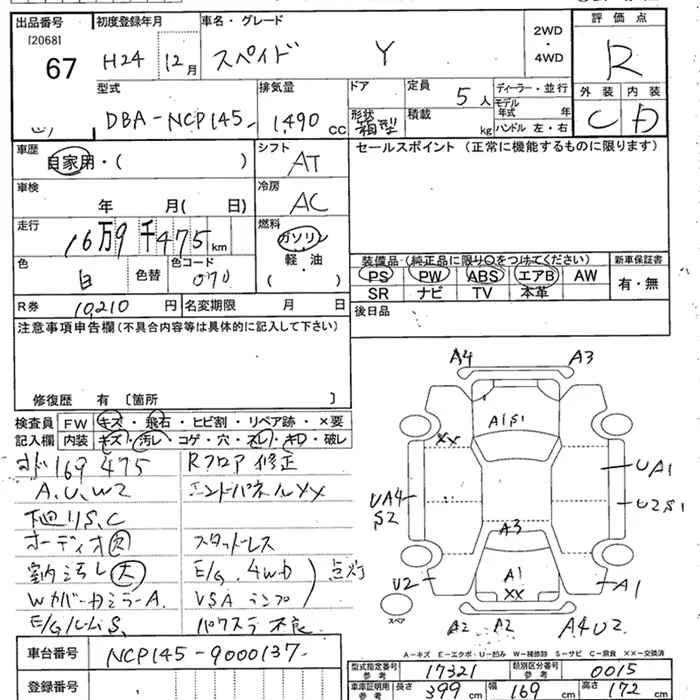 出品番号 初度登録年月 車名・グレード 2WD・4WD 評価点
[2068]
67 H24 12月 スペイド Y R
型式 排気量 ドア 定員 ディーラー・並行 外装 内装
DBA-NCP145- 1,490cc 形状 箱型 5人 積載 kg モデル年式 年 ハンドル 左・右 C D
車歴 自家用・( ) シフト AT セールスポイント (正常に機能するものに限ります)
車検 年 月( 日) 冷房 AC
走行 16万9千475km 燃料 ガソリン 軽・油 ( )
色 白 色替 色コード 070
装備品 (純正品に限り○をつけてください) 新車保証書
PS PW ABS エアB AW 有・無
SR ナビ TV 本革
R券 10,210円 名変期限 月 日 後日品
注意事項申告欄(不具合内容等は具体的に記入して下さい)
修復歴 有 [箇所 ]
検査員 FW キズ・飛石・ヒビ割・リペア跡・×要
記入欄 内装 キズ・汚レ・コゲ・穴・スレ・キロ・破レ
169475 Rフロア修正
A、U、W2 エンドパネルXX
下廻りS、C
オーディオ欠 スタッドレス
室内汚レ大 E/G、4WD 点灯
Wカバーカミラー A. VSAランプ
E/GルームS. パワステ不良
A4 A3
A1S1
XX
UA1
UA4 S2
U2S1
A3
A1
XX
U2 A1
スペア
A2 A2 A4U2
A-キズ E-エクボ・U-凹み W-補修跡 S-サビ C-腐食 XX-交換済
車台番号 NCP145-9000137-
登録番号
型式指定番号 参考 17321 類別区分番号 参考 0015
車庫証明用 参考 長さ 399cm 幅 169cm 高さ 172cm